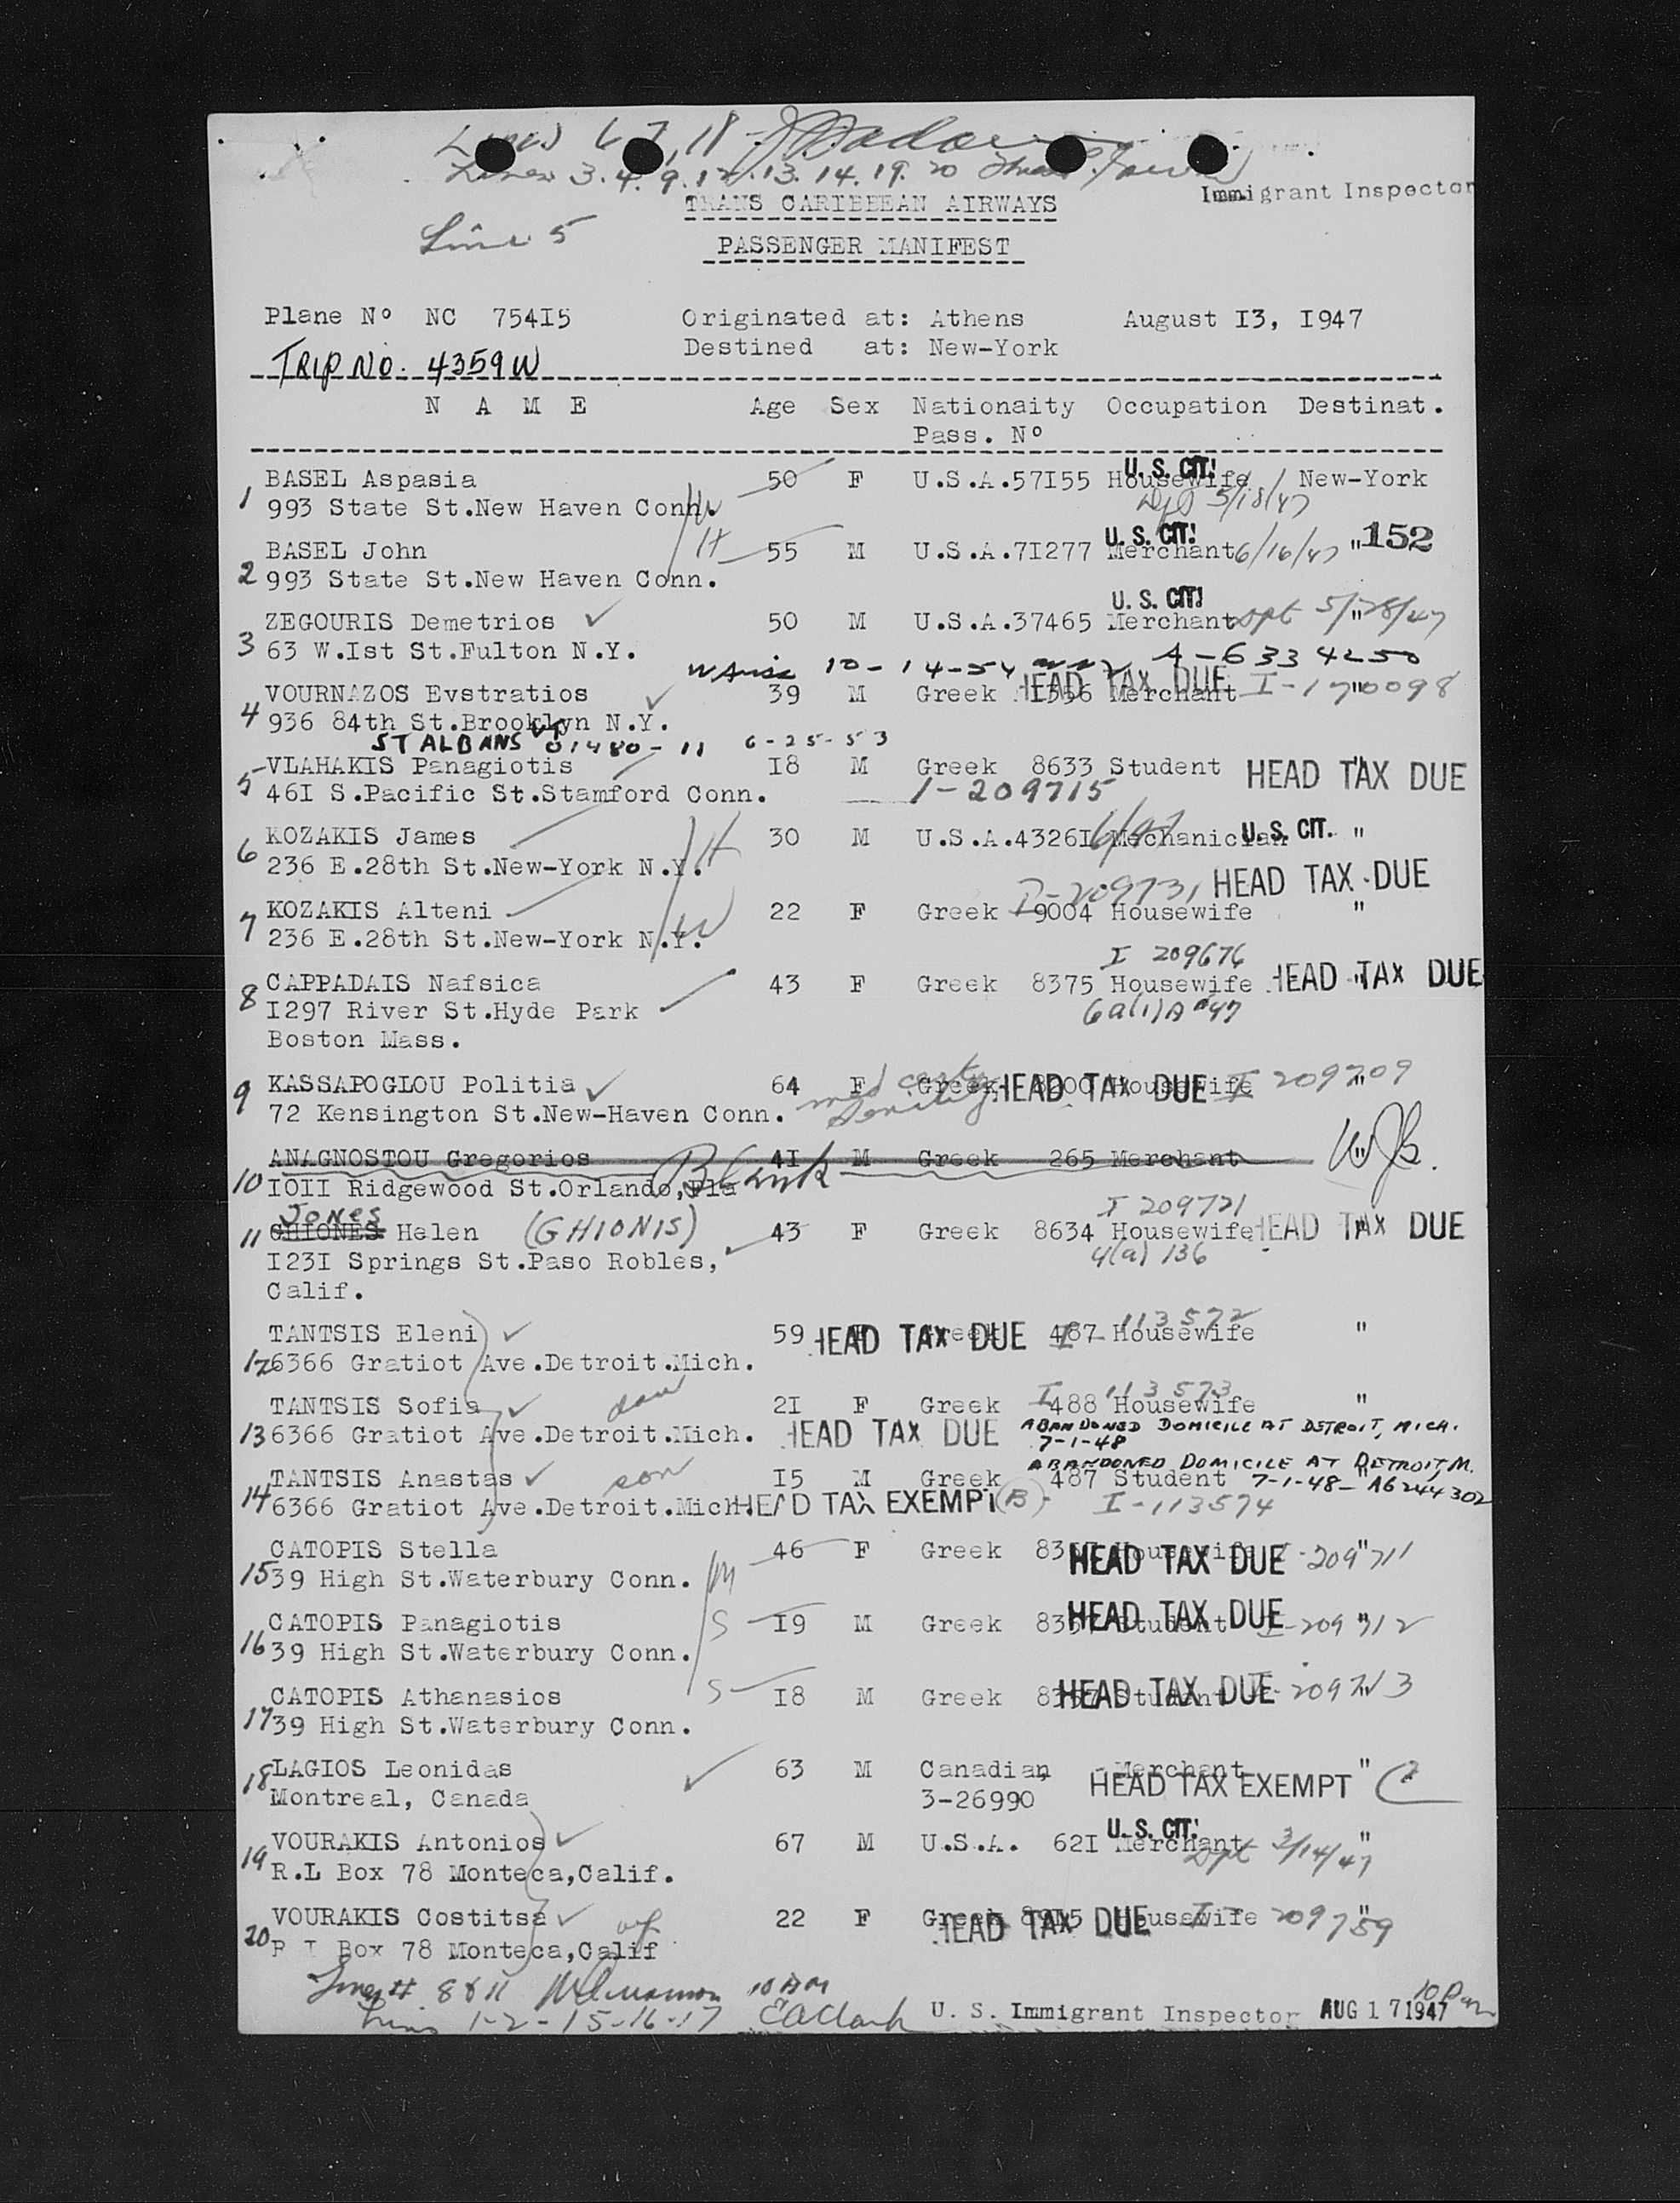 Lines 6 7, 11 -
Lines 3. 4. 9. 12. 13. 14. 19. 20
Immigrant Inspector
TRANS CARIBBEAN AIRWAYS
Line 5
PASSENGER MANIFEST
Plane Nº NC 754I5 Originated at: Athens August I3, I947
Destined at: New-York
TRIP NO. 4359W
N A M E Age Sex Nationaity Occupation Destinat.
Pass. Nº
U. S. CIT!
BASEL Aspasia 50 F U.S.A.57I55 Housewife New-York
1 993 State St.New Haven Conn. W 5/18/47
U. S. CIT!
BASEL John H 55 M U.S.A.7I277 Merchant 6/16/47 " 152
2 993 State St.New Haven Conn.
U. S. CIT!
ZEGOURIS Demetrios 50 M U.S.A.37465 Merchant Dpt 5/28/47 "
3 63 W.Ist St.Fulton N.Y.
10-14-54 A-6334250
HEAD TAX DUE
VOURNAZOS Evstratios 39 M Greek Merchant I-170098 "
4 936 84th St.Brooklyn N.Y.
ST ALBANS VT 01480-11 6-25-53
VLAHAKIS Panagiotis I8 M Greek 8633 Student " HEAD TAX DUE
5 46I S.Pacific St.Stamford Conn. I-209715
KOZAKIS James H 30 M U.S.A.4326I 6/47 Mechanician U. S. CIT. "
6 236 E.28th St.New-York N.Y.
I-209731 HEAD TAX DUE
KOZAKIS Alteni 22 F Greek 9004 Housewife "
7 236 E.28th St.New-York N.Y. W
I 209676
CAPPADAIS Nafsica 43 F Greek 8375 Housewife HEAD TAX DUE "
8 I297 River St.Hyde Park 6a(1)A #47
Boston Mass.
KASSAPOGLOU Politia 64 F Greek 8200 Housewife HEAD TAX DUE I 209709 "
9 72 Kensington St.New-Haven Conn. med cert. Senility
ANAGNOSTOU Gregorios 4I M Greek 265 Merchant " WJB.
10 IOII Ridgewood St.Orlando,Fla Blank
JONES I 209721
11 GHIONES Helen (GHIONIS) 43 F Greek 8634 Housewife HEAD TAX DUE "
I23I Springs St.Paso Robles, 4(a) 136
Calif.
113572
TANTSIS Eleni 59 F Greek 487 Housewife HEAD TAX DUE "
12 6366 Gratiot Ave.Detroit.Mich.
I 113573
TANTSIS Sofia dau 2I F Greek 488 Housewife "
13 6366 Gratiot Ave.Detroit.Mich. HEAD TAX DUE ABANDONED DOMICILE AT DETROIT, MICH.
7-1-48
ABANDONED DOMICILE AT DETROIT, M.
TANTSIS Anastas son I5 M Greek 487 Student " 7-1-48 - A6244302
14 6366 Gratiot Ave.Detroit.Mich. HEAD TAX EXEMPT (B) I-113574
CATOPIS Stella 46 F Greek Housewife HEAD TAX DUE I-209711 "
15 39 High St.Waterbury Conn. M
CATOPIS Panagiotis S I9 M Greek Student HEAD TAX DUE I-209712 "
16 39 High St.Waterbury Conn.
CATOPIS Athanasios S I8 M Greek Student HEAD TAX DUE I-209713 "
17 39 High St.Waterbury Conn.
LAGIOS Leonidas 63 M Canadian, - Merchant "
18 Montreal, Canada 3-26990 HEAD TAX EXEMPT
U. S. CIT.
VOURAKIS Antonios 67 M U.S.A. 62I Merchant Dpt 3/14/47 "
19 R.L Box 78 Monteca,Calif.
VOURAKIS Costitsa wf 22 F Greek Housewife HEAD TAX DUE I-209759 "
20 Box 78 Monteca,Calif
Lines # 8 & 11 10 AM
Lines 1-2-15-16-17 EAClark U. S. Immigrant Inspector AUG 17 1947 10 Pm